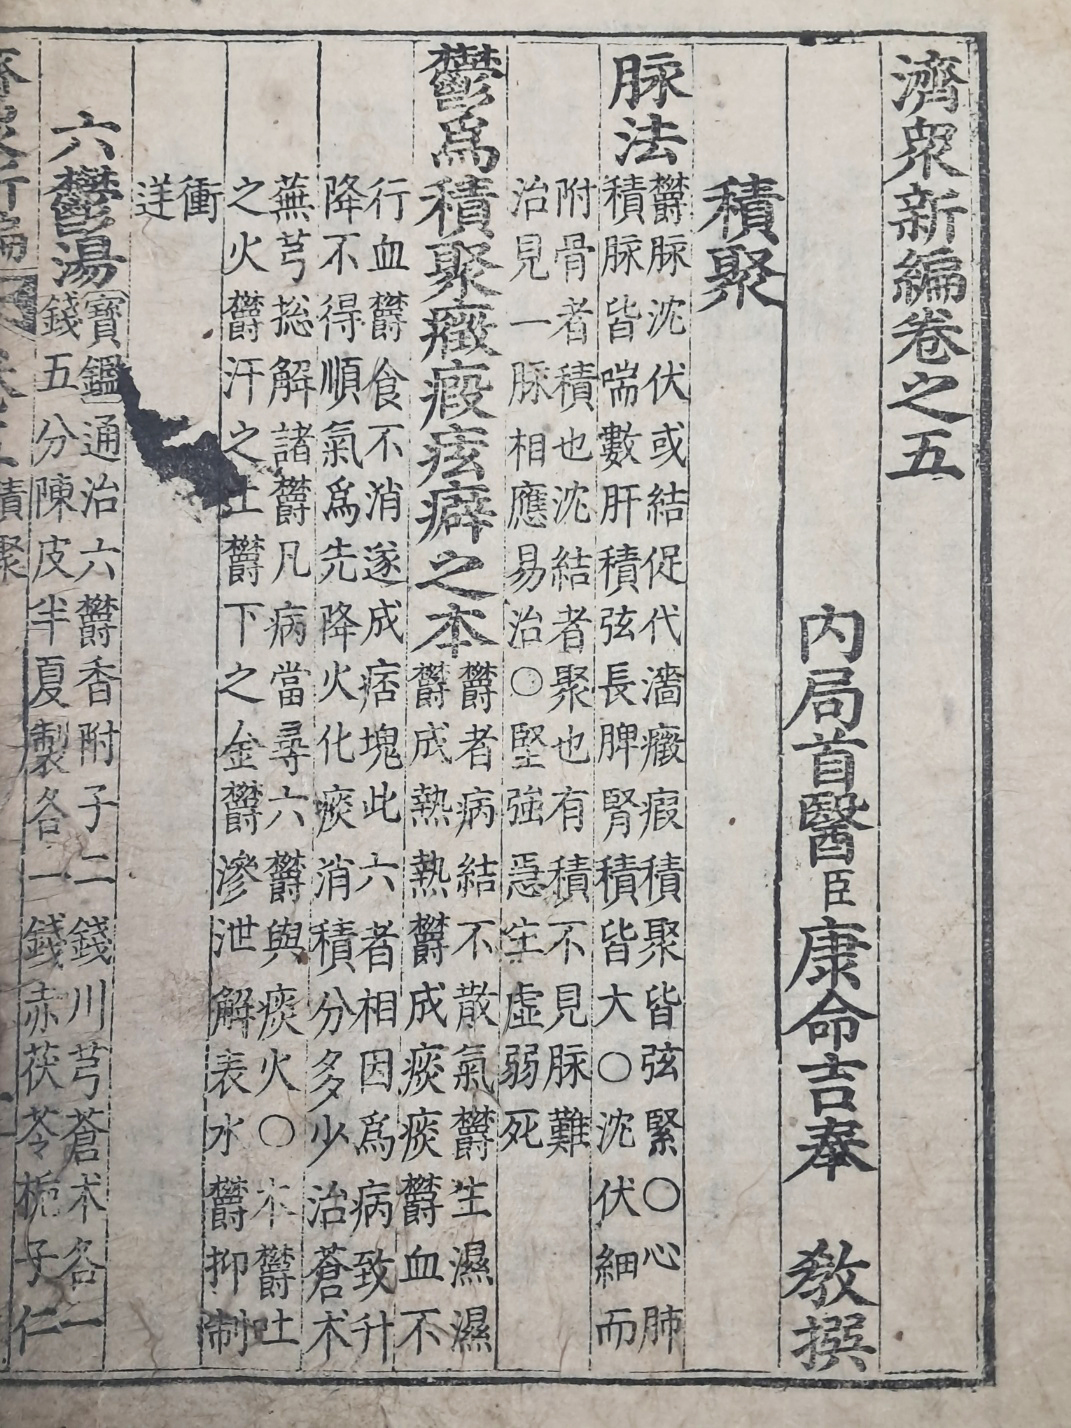 濟衆新編卷之五
內局首醫臣康命吉奉 敎撰
積聚
脉法
欝脉沈伏或結促代濇癥瘕積聚皆弦緊○心肺
積脉皆喘數肝積弦長脾腎積皆大○沈伏細而
附骨者積也沈結者聚也有積不見脉難
治見一脉相應易治○堅強急生虛弱死
鬱爲積聚癥瘕痃癖之本
欝者病結不散氣欝生濕濕
欝成熱熱欝成痰痰欝血不
行血欝食不消遂成痞塊此六者相因爲病致升
降不得順氣爲先降火化痰消積分多少治蒼朮
蕪芎捴解諸欝凡病當尋六欝與痰火○木欝吐
之火欝汗之土欝下之金欝滲泄解表水欝抑制
衝
逆
六鬱湯
寶鑑通治六欝香附子二錢川芎蒼朮各一
錢五分陳皮半夏製各一錢赤茯苓梔子仁
濟衆新編 積聚